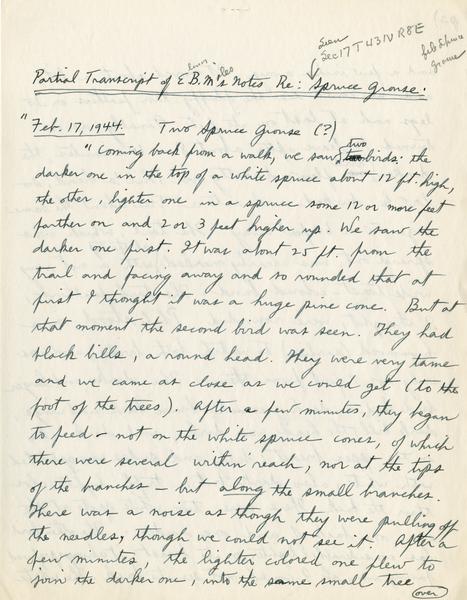 Seen
Sec 17 T 43 N R 8 E
Partial Transcript of E.B.M's Notes Re: Spruce Grouse.
"Feb. 17, 1944. Two Spruce Grouse (?)
"Coming back from a walk, we saw two birds: the
darker one in the top of a white spruce about 12 ft. high,
the other, lighter one in a spruce some 12 or more feet
farther on and 2 or 3 feet higher up. We saw the
darker one first. It was about 25 ft. from the
trail and facing away and so rounded that at
first I thought it was a huge pine cone. But at
that moment the second bird was seen. They had
black bills, a round head. They were very tame
and we came as close as we could get (to the
foot of the trees). After a few minutes, they began
to feed - not on the white spruce cones, of which
there were several within reach, nor at the tips
of the branches - but along the small branches.
There was a noise as though they were pulling off
the needles, though we could not see it. After a
few minutes, the lighter colored one flew to
join the darker one, into the same small tree
(over)